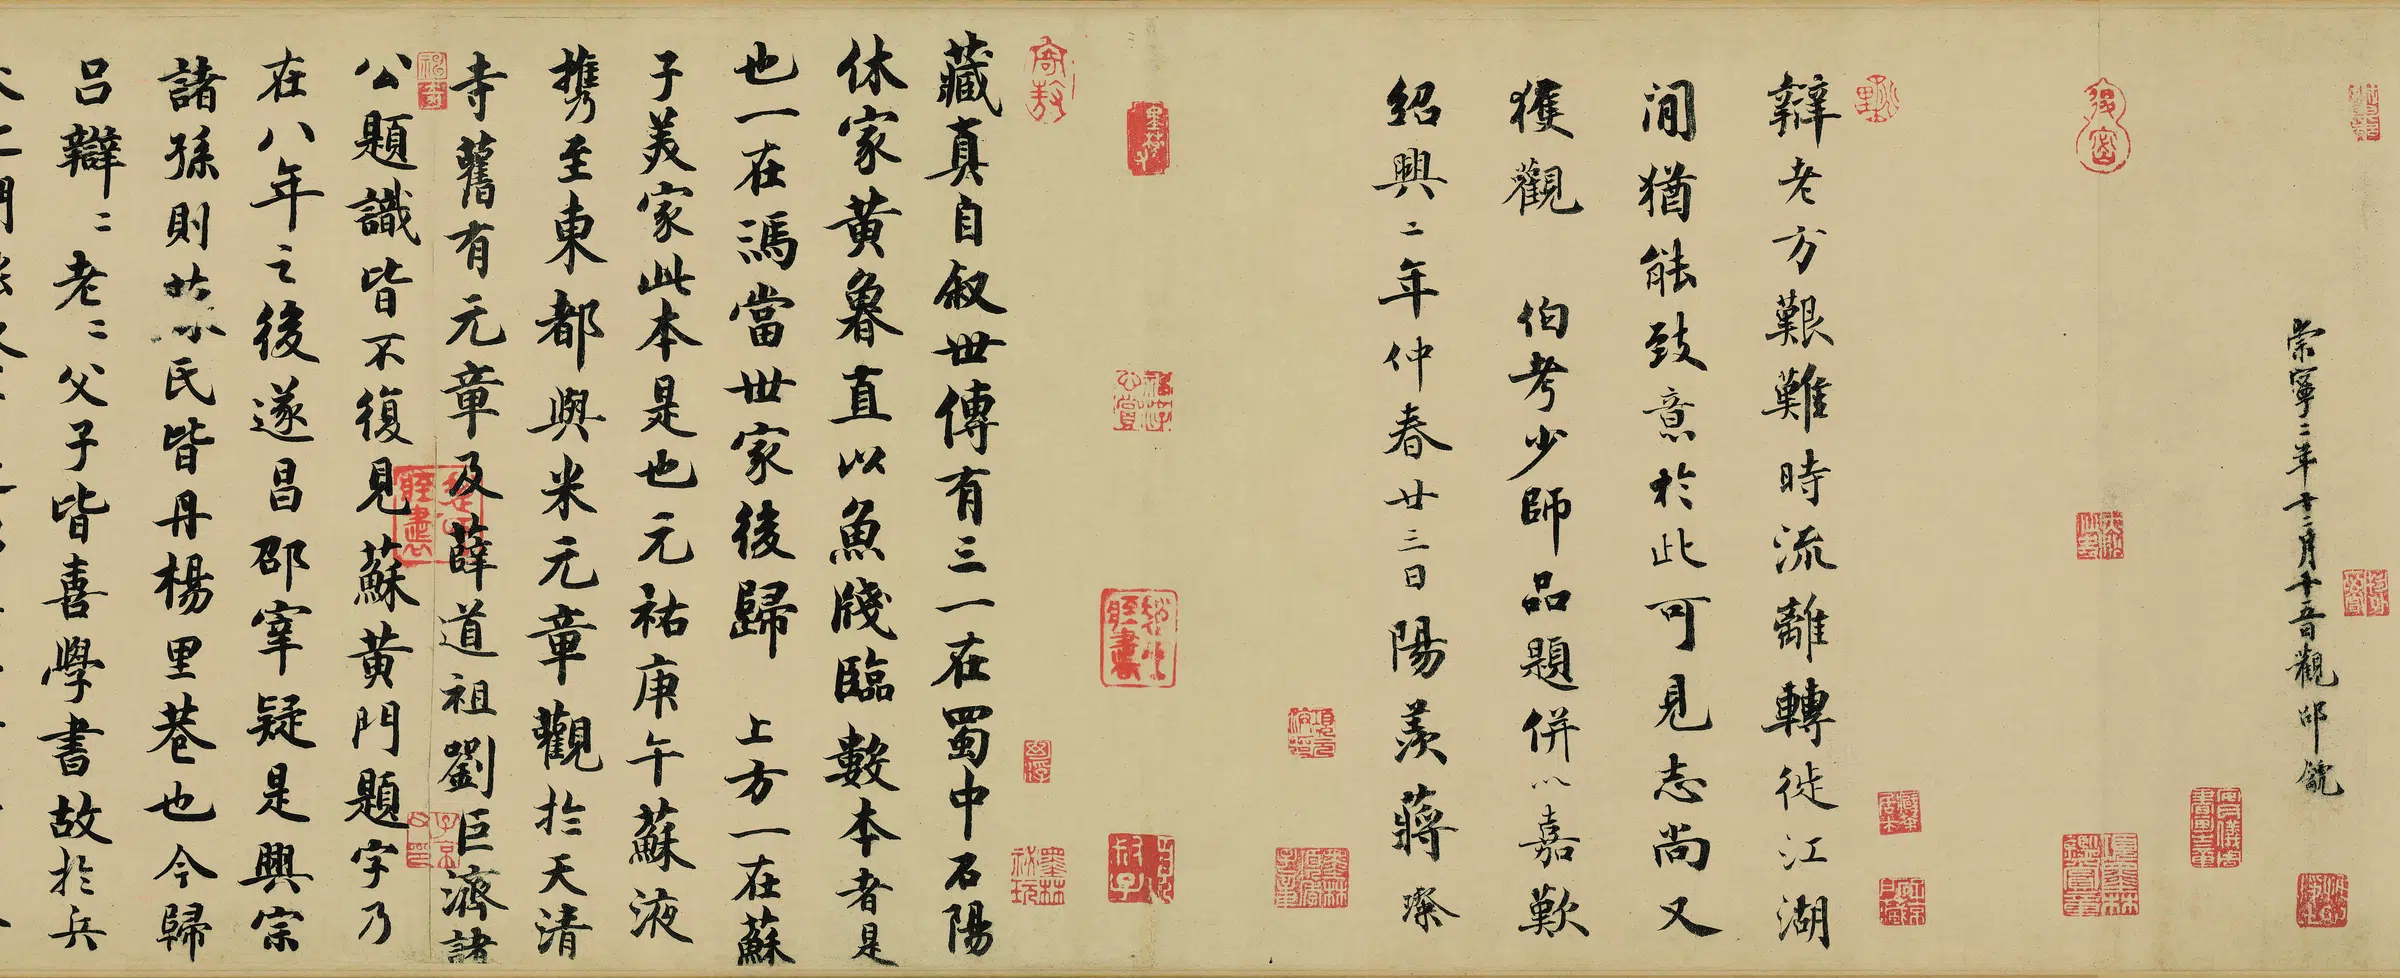 崇寧二年十二月十五日觀邵𩜾
辯老方艱難時流離轉徙江湖
間猶能致意於此可見志尚又
獲觀　伯考少師品題併以嘉歎
紹興二年仲春廿三日陽羨蔣璨
藏真自叙世傳有三一在蜀中石陽
休家黃魯直以魚牋臨數本者是
也一在馮當世家後歸　上方一在蘇
子美家此本是也元祐庚午蘇液
攜至東都與米元章觀於天清
寺舊有元章及薛道祖劉巨濟諸
公題識皆不復見蘇黃門題字乃
在八年之後遂昌邵宰疑是興宗
諸孫則蘇氏皆丹楊里巷也今歸
呂辯〻老〻父子皆喜學書故於兵